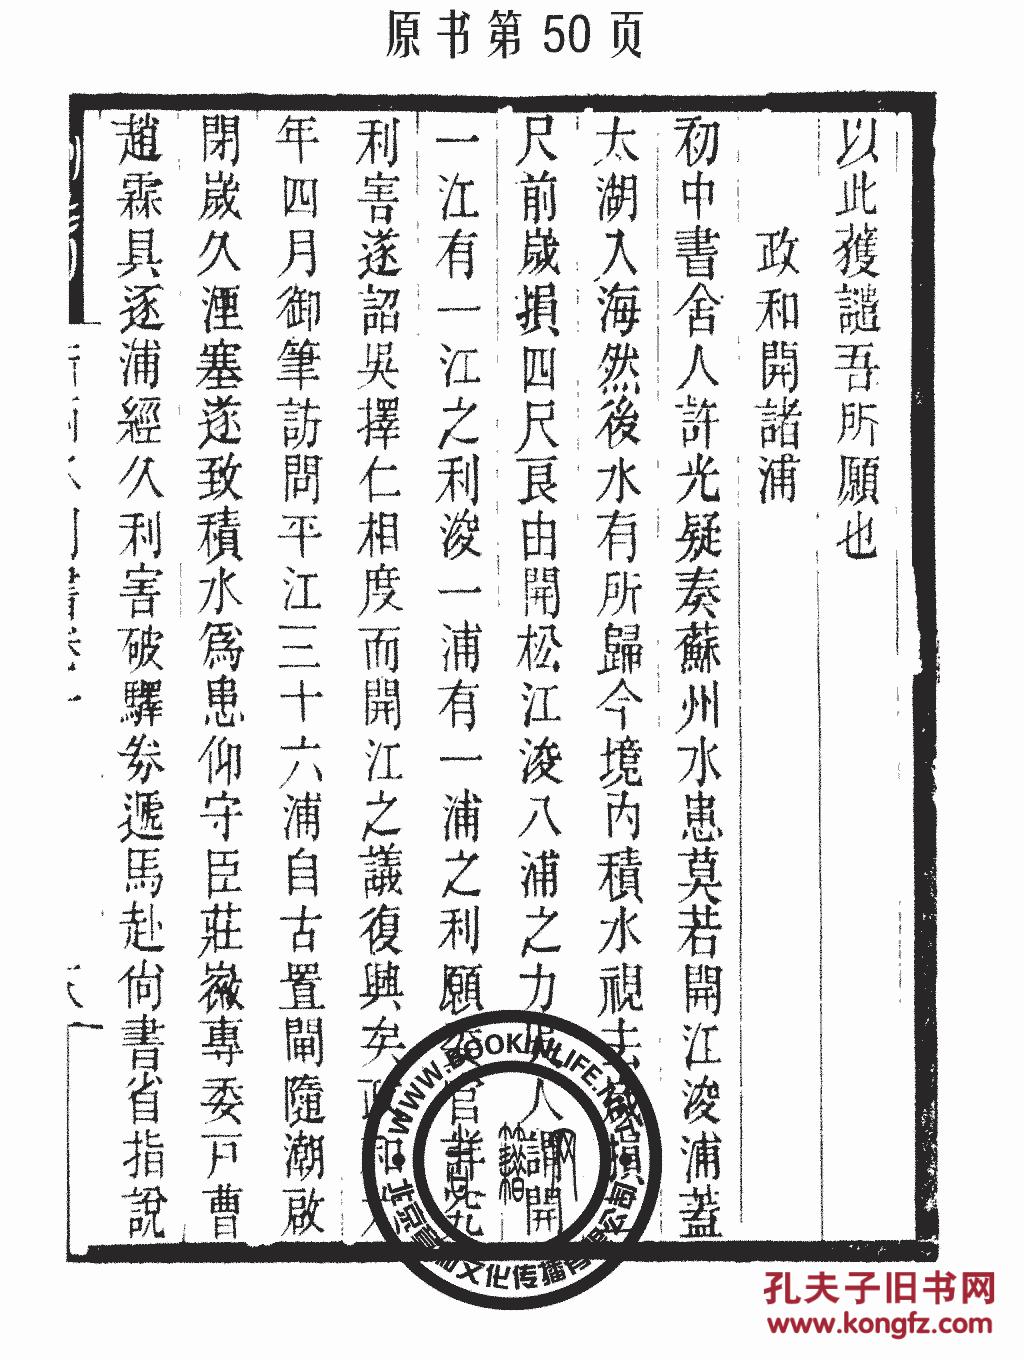 原书第50页
以此獲譴吾所願也
政和開諸浦
初中書舍人許光疑奏蘇州水患莫若開江浚浦蓋
太湖入海然後水有所歸今境內積水視去
尺前歲損四尺良由開松江浚八浦之力
人謂開
一江有一江之利浚一浦有一浦之利願
利害遂詔吳擇仁相度而開江之議復興矣
年四月御筆訪問平江三十六浦自古置閘隨潮啟
閉歲久湮塞遂致積水為患仰守臣莊徽專委戶曹
趙霖具逐浦經久利害破驛券遞馬赴尙書省指說
WWW.BOOKINLIFE
文化传播
孔夫子旧书网
www.kongfz.com